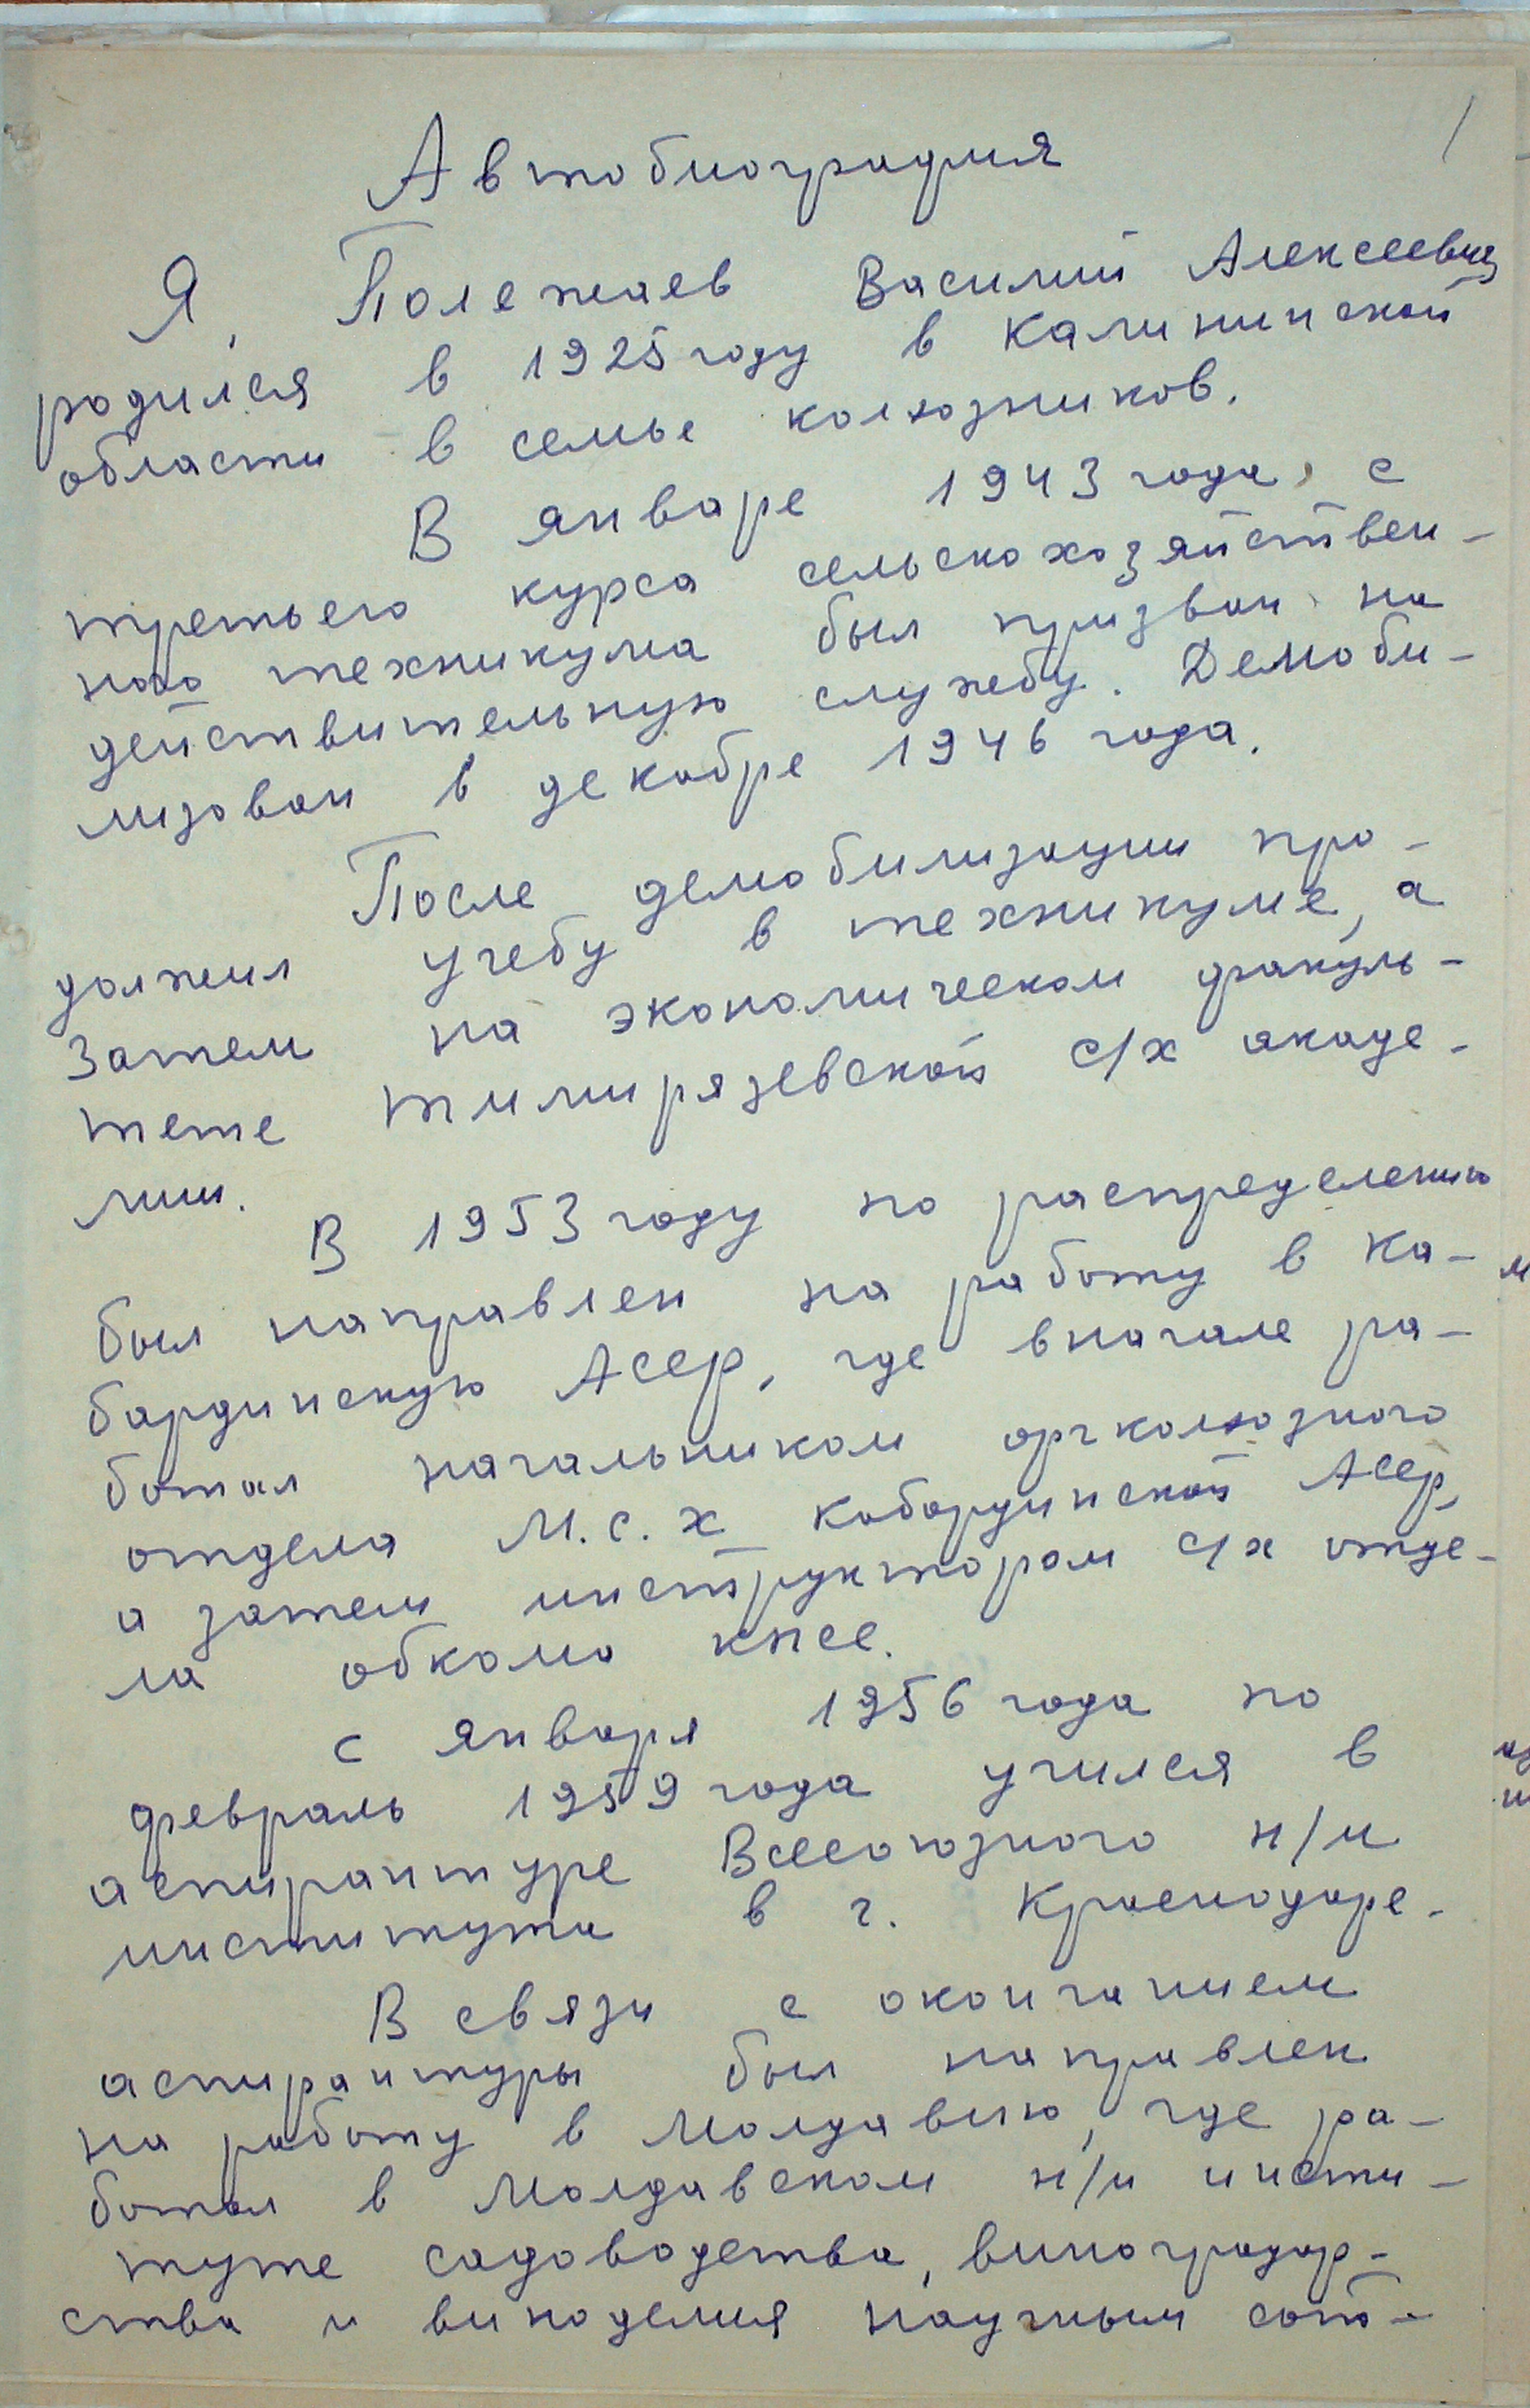 1
Автобиография
Я, Полежаев Василий Алексеевич
родился в 1925 году в Калининской
области в семье колхозников.
В январе 1943 года, с
третьего курса сельскохозяйствен-
ного техникума был призван на
действительную службу. Демоби-
лизован в декабре 1946 года.
После демобилизации про-
должил учебу в техникуме, а
затем на экономическом факуль-
тете тимирязевской с/х акаде-
мии.
В 1953 году по распределению
был направлен на работу в Ка-
бардинскую АССР, где вначале ра-
ботал начальником оргколхозного
отдела М.с.х Кабардинской АССР,
а затем инструктором с/х отде-
ла обкома КПСС.
С января 1956 года по
февраль 1959 года учился в
аспирантуре Всесоюзного н/и
института в г. Краснодаре.
В связи с окончанием
аспирантуры был направлен
на работу в Молдавию, где ра-
ботал в Молдавском н/и инсти-
туте садоводства, виноградар-
ства и виноделия научным сот-